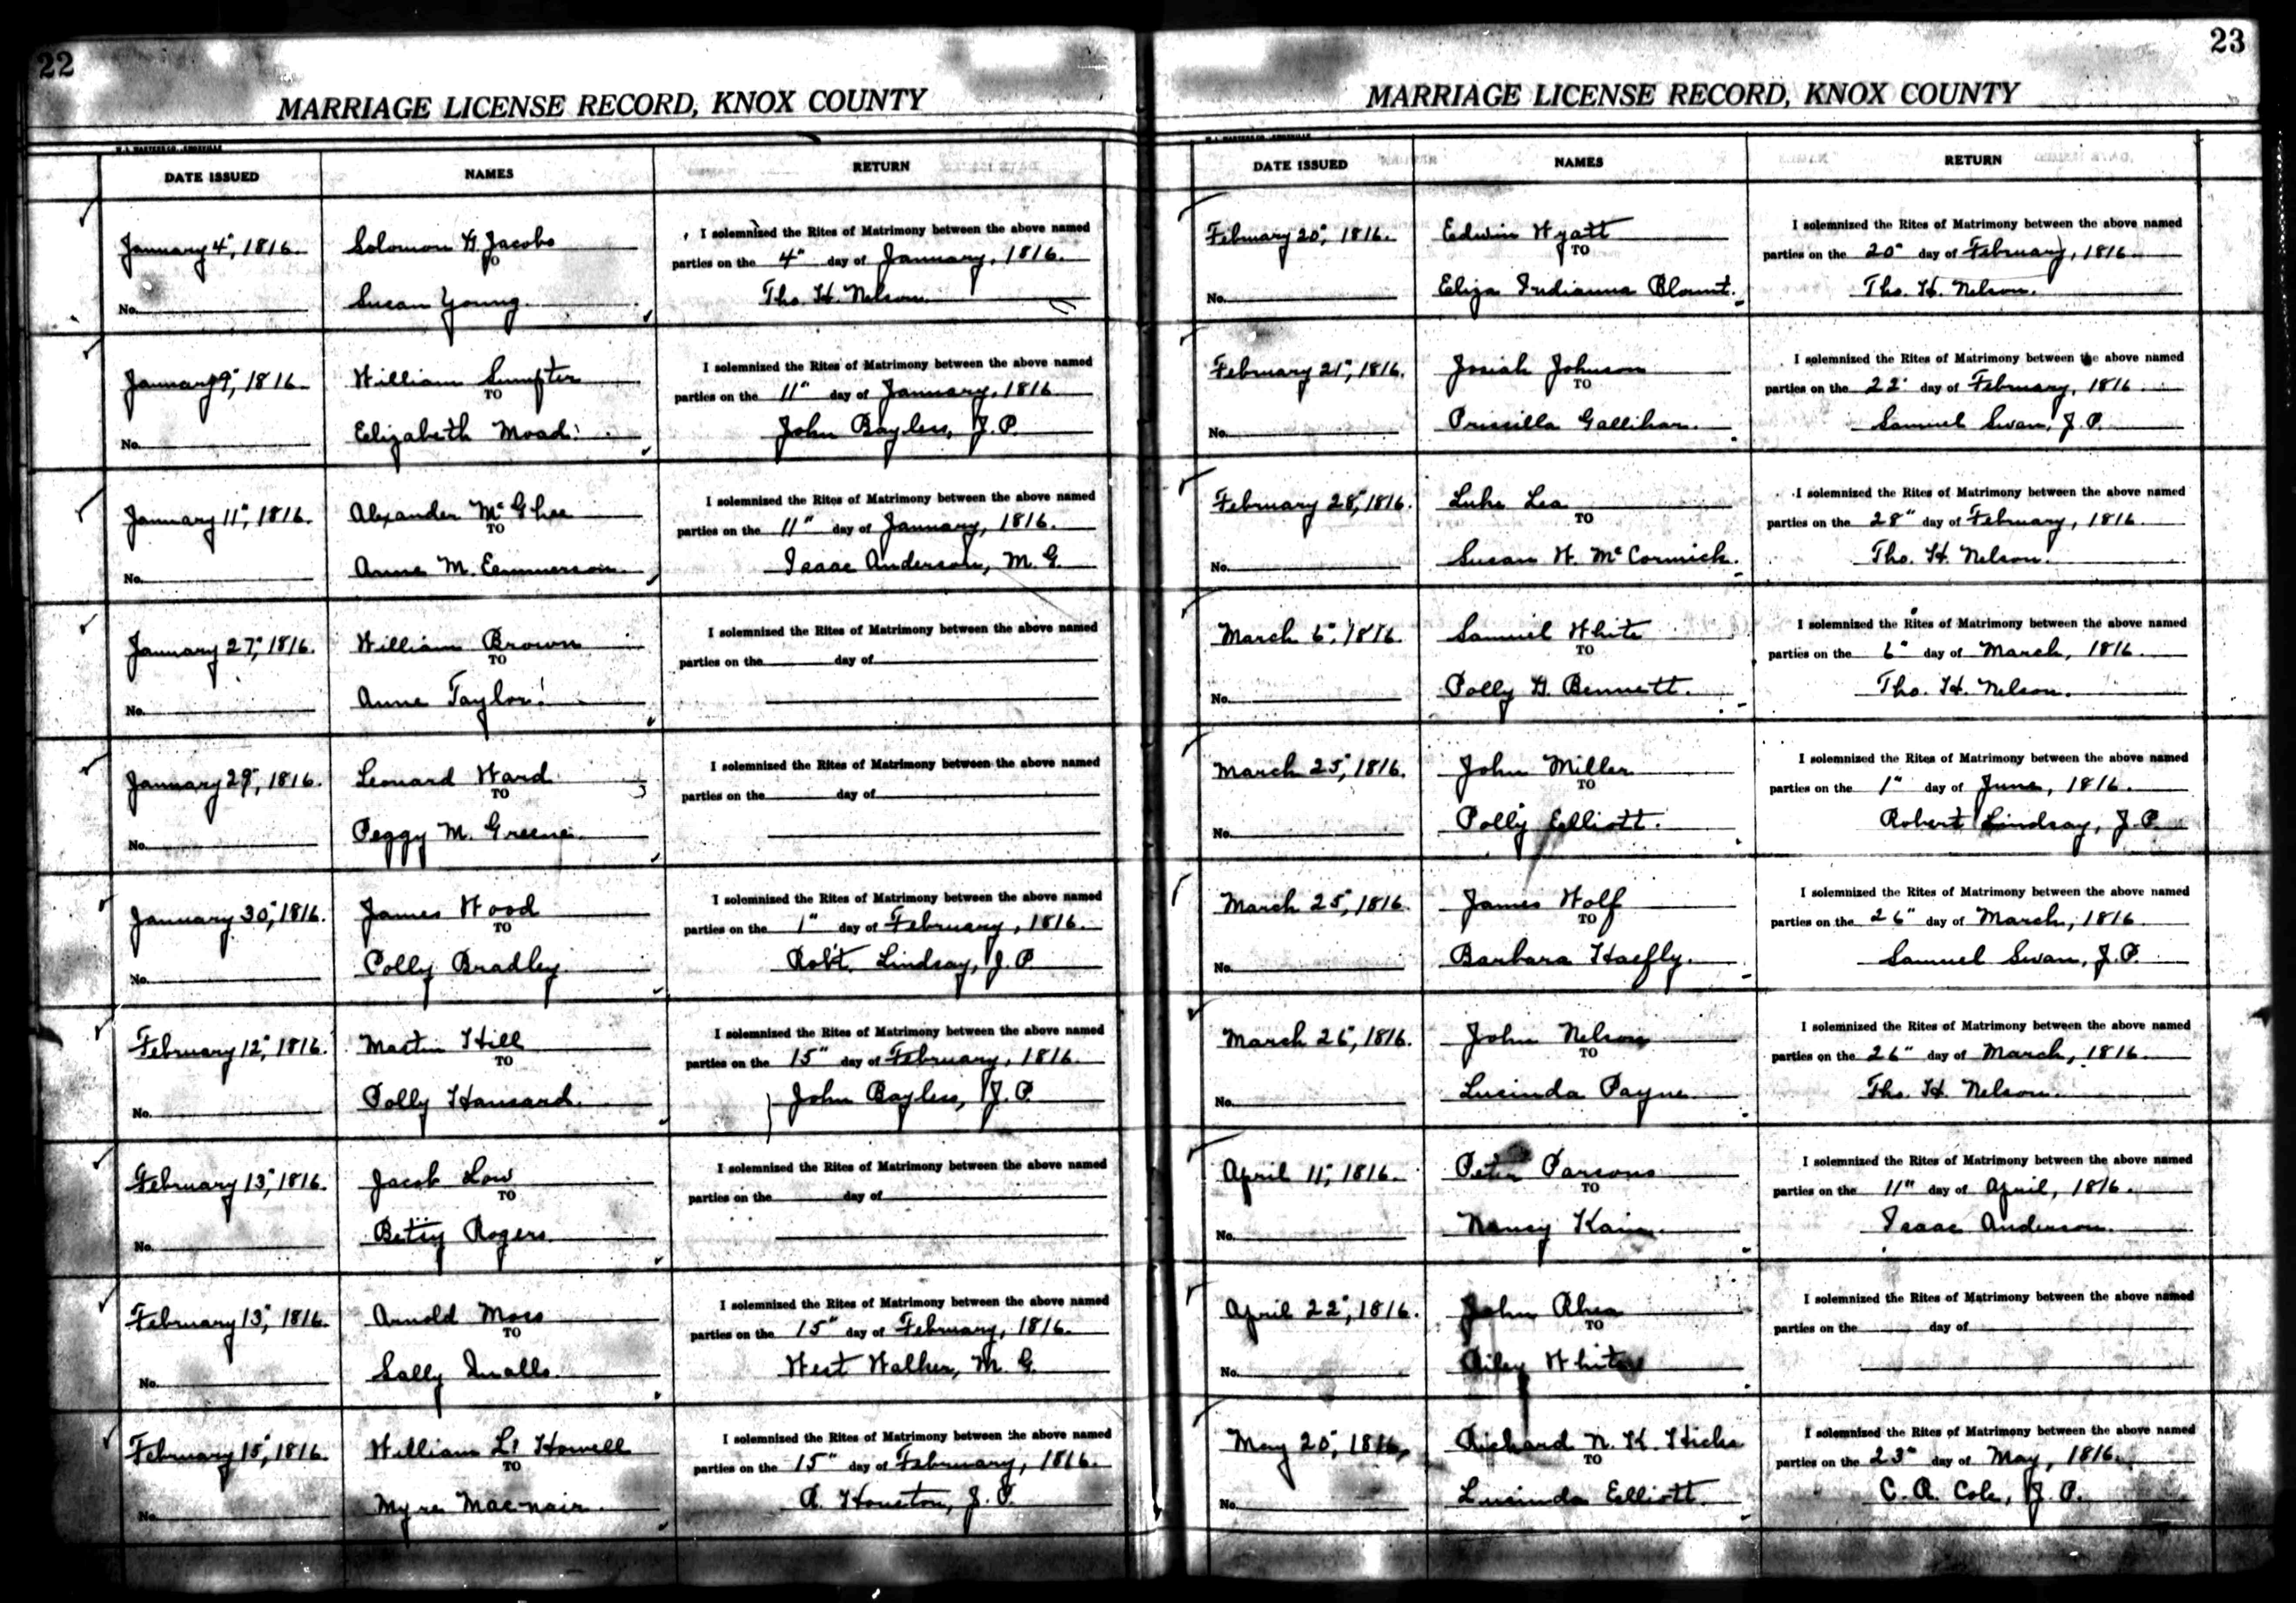 22
MARRIAGE LICENSE RECORD, KNOX COUNTY
DATE ISSUED NAMES RETURN
January 4", 1816. Solomon G. Jacobs I solemnized the Rites of Matrimony between the above named
TO parties on the 4" day of January, 1816.
No. Susan Young. Tho. H. Nelson.
January 9", 1816. William Sumpter I solemnized the Rites of Matrimony between the above named
TO parties on the 11" day of January, 1816
No. Elizabeth Moad. John Bayless, J. P.
January 11", 1816. Alexander McGhee I solemnized the Rites of Matrimony between the above named
TO parties on the 11" day of January, 1816.
No. Anne M. Eemmerson. Isaac Anderson, M. G.
January 27", 1816. William Brown I solemnized the Rites of Matrimony between the above named
TO parties on the day of
No. Anne Taylor.
January 29", 1816. Leonard Ward I solemnized the Rites of Matrimony between the above named
TO parties on the day of
No. Peggy M. Greene.
January 30", 1816. James Wood I solemnized the Rites of Matrimony between the above named
TO parties on the 1" day of February, 1816.
No. Polly Bradley. Robt. Lindsay, J. P.
February 12", 1816. Martin Hill I solemnized the Rites of Matrimony between the above named
TO parties on the 15" day of February, 1816.
No. Polly Hansard. John Bayless, J. P.
February 13", 1816. Jacob Low I solemnized the Rites of Matrimony between the above named
TO parties on the day of
No. Betsy Rogers.
February 13", 1816. Arnold Moss I solemnized the Rites of Matrimony between the above named
TO parties on the 15" day of February, 1816.
No. Sally Qualls. West Walker, M. G.
February 15", 1816. William Howell I solemnized the Rites of Matrimony between the above named
TO parties on the 15" day of February, 1816.
No. Myra Mac-nair. R. Houston, J. P.
23
MARRIAGE LICENSE RECORD, KNOX COUNTY
DATE ISSUED NAMES RETURN
February 20", 1816. Edwin Wyatt I solemnized the Rites of Matrimony between the above named
TO parties on the 20" day of February, 1816.
No. Eliza Indianna Blount. Tho. H. Nelson.
February 21", 1816. Josiah Johnson I solemnized the Rites of Matrimony between the above named
TO parties on the 22" day of February, 1816.
No. Prissilla Gallihan. Samuel Swan, J. P.
February 28", 1816. Luke Lea I solemnized the Rites of Matrimony between the above named
TO parties on the 28" day of February, 1816.
No. Susan W. McCormick. Tho. H. Nelson.
March 6", 1816. Samuel White I solemnized the Rites of Matrimony between the above named
TO parties on the 6" day of March, 1816.
No. Polly G. Bennett. Tho. H. Nelson.
March 25", 1816. John Miller I solemnized the Rites of Matrimony between the above named
TO parties on the 1" day of June, 1816.
No. Polly Elliott. Robert Lindsay, J. P.
March 25", 1816. James Wolf I solemnized the Rites of Matrimony between the above named
TO parties on the 26" day of March, 1816
No. Barbara Haefly. Samuel Swan, J. P.
March 26", 1816. John Nelson I solemnized the Rites of Matrimony between the above named
TO parties on the 26" day of March, 1816.
No. Lucinda Payne Tho. H. Nelson.
April 11", 1816. Peter Parsons I solemnized the Rites of Matrimony between the above named
TO parties on the 11" day of April, 1816.
No. Nancy Kain. Isaac Anderson.
April 22", 1816. John Rhea I solemnized the Rites of Matrimony between the above named
TO parties on the day of
No. White
May 20", 1816. Richard N. K. Hicks I solemnized the Rites of Matrimony between the above named
TO parties on the 23" day of May, 1816.
No. Lucinda Elliott. C. R. Cole, J. P.